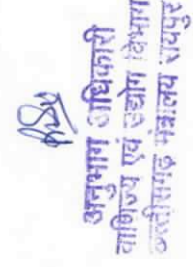 अनुभाग अधिकारी
वाणिज्य एवं उद्योग विभाग
छत्तीसगढ़ मंत्रालय रायपुर